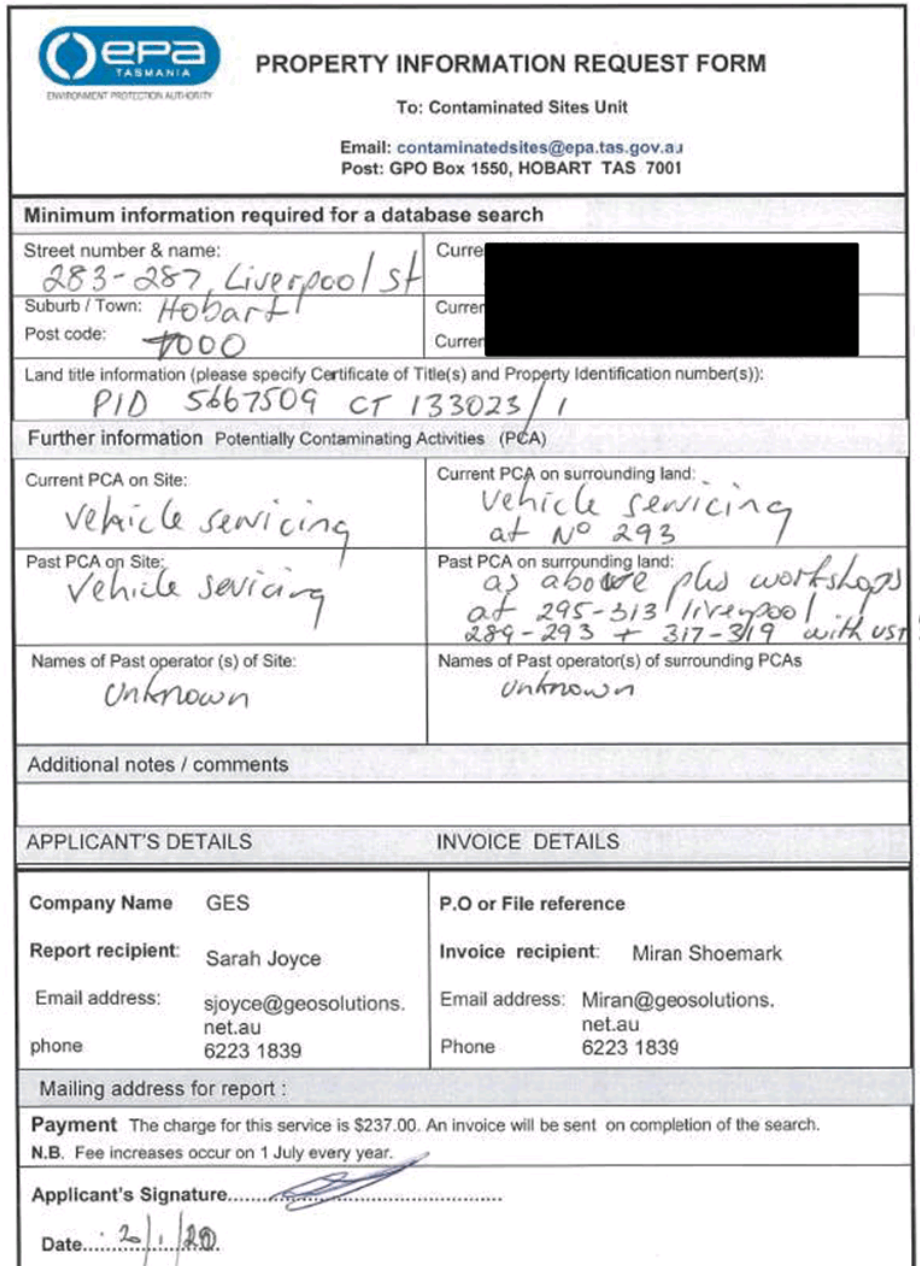 epa
TASMANIA
ENVIRONMENT PROTECTION AUTHORITY
PROPERTY INFORMATION REQUEST FORM
To: Contaminated Sites Unit
Email: contaminatedsites@epa.tas.gov.au
Post: GPO Box 1550, HOBART TAS 7001
Minimum information required for a database search
Street number & name:
283-287, Liverpool St
Curre
Suburb / Town: Hobart
Curren
Post code: 7000
Curren
Land title information (please specify Certificate of Title(s) and Property Identification number(s)):
PID 5667509 CT 133023/1
Further information Potentially Contaminating Activities (PCA)
Current PCA on Site:
vehicle servicing
Current PCA on surrounding land:
vehicle servicing
at Nº 293
Past PCA on Site:
Vehicle sevicing
Past PCA on surrounding land:
as above plus workshops
at 295-313 liverpool
289-293 + 317-319 with UST
Names of Past operator (s) of Site:
Unknown
Names of Past operator(s) of surrounding PCAs
Unknown
Additional notes / comments
APPLICANT'S DETAILS
INVOICE DETAILS
Company Name GES
P.O or File reference
Report recipient: Sarah Joyce
Invoice recipient: Miran Shoemark
Email address: sjoyce@geosolutions.
net.au
Email address: Miran@geosolutions.
net.au
phone 6223 1839
Phone 6223 1839
Mailing address for report :
Payment The charge for this service is $237.00. An invoice will be sent on completion of the search.
N.B. Fee increases occur on 1 July every year.
Applicant's Signature..................................................
Date 2/1/20